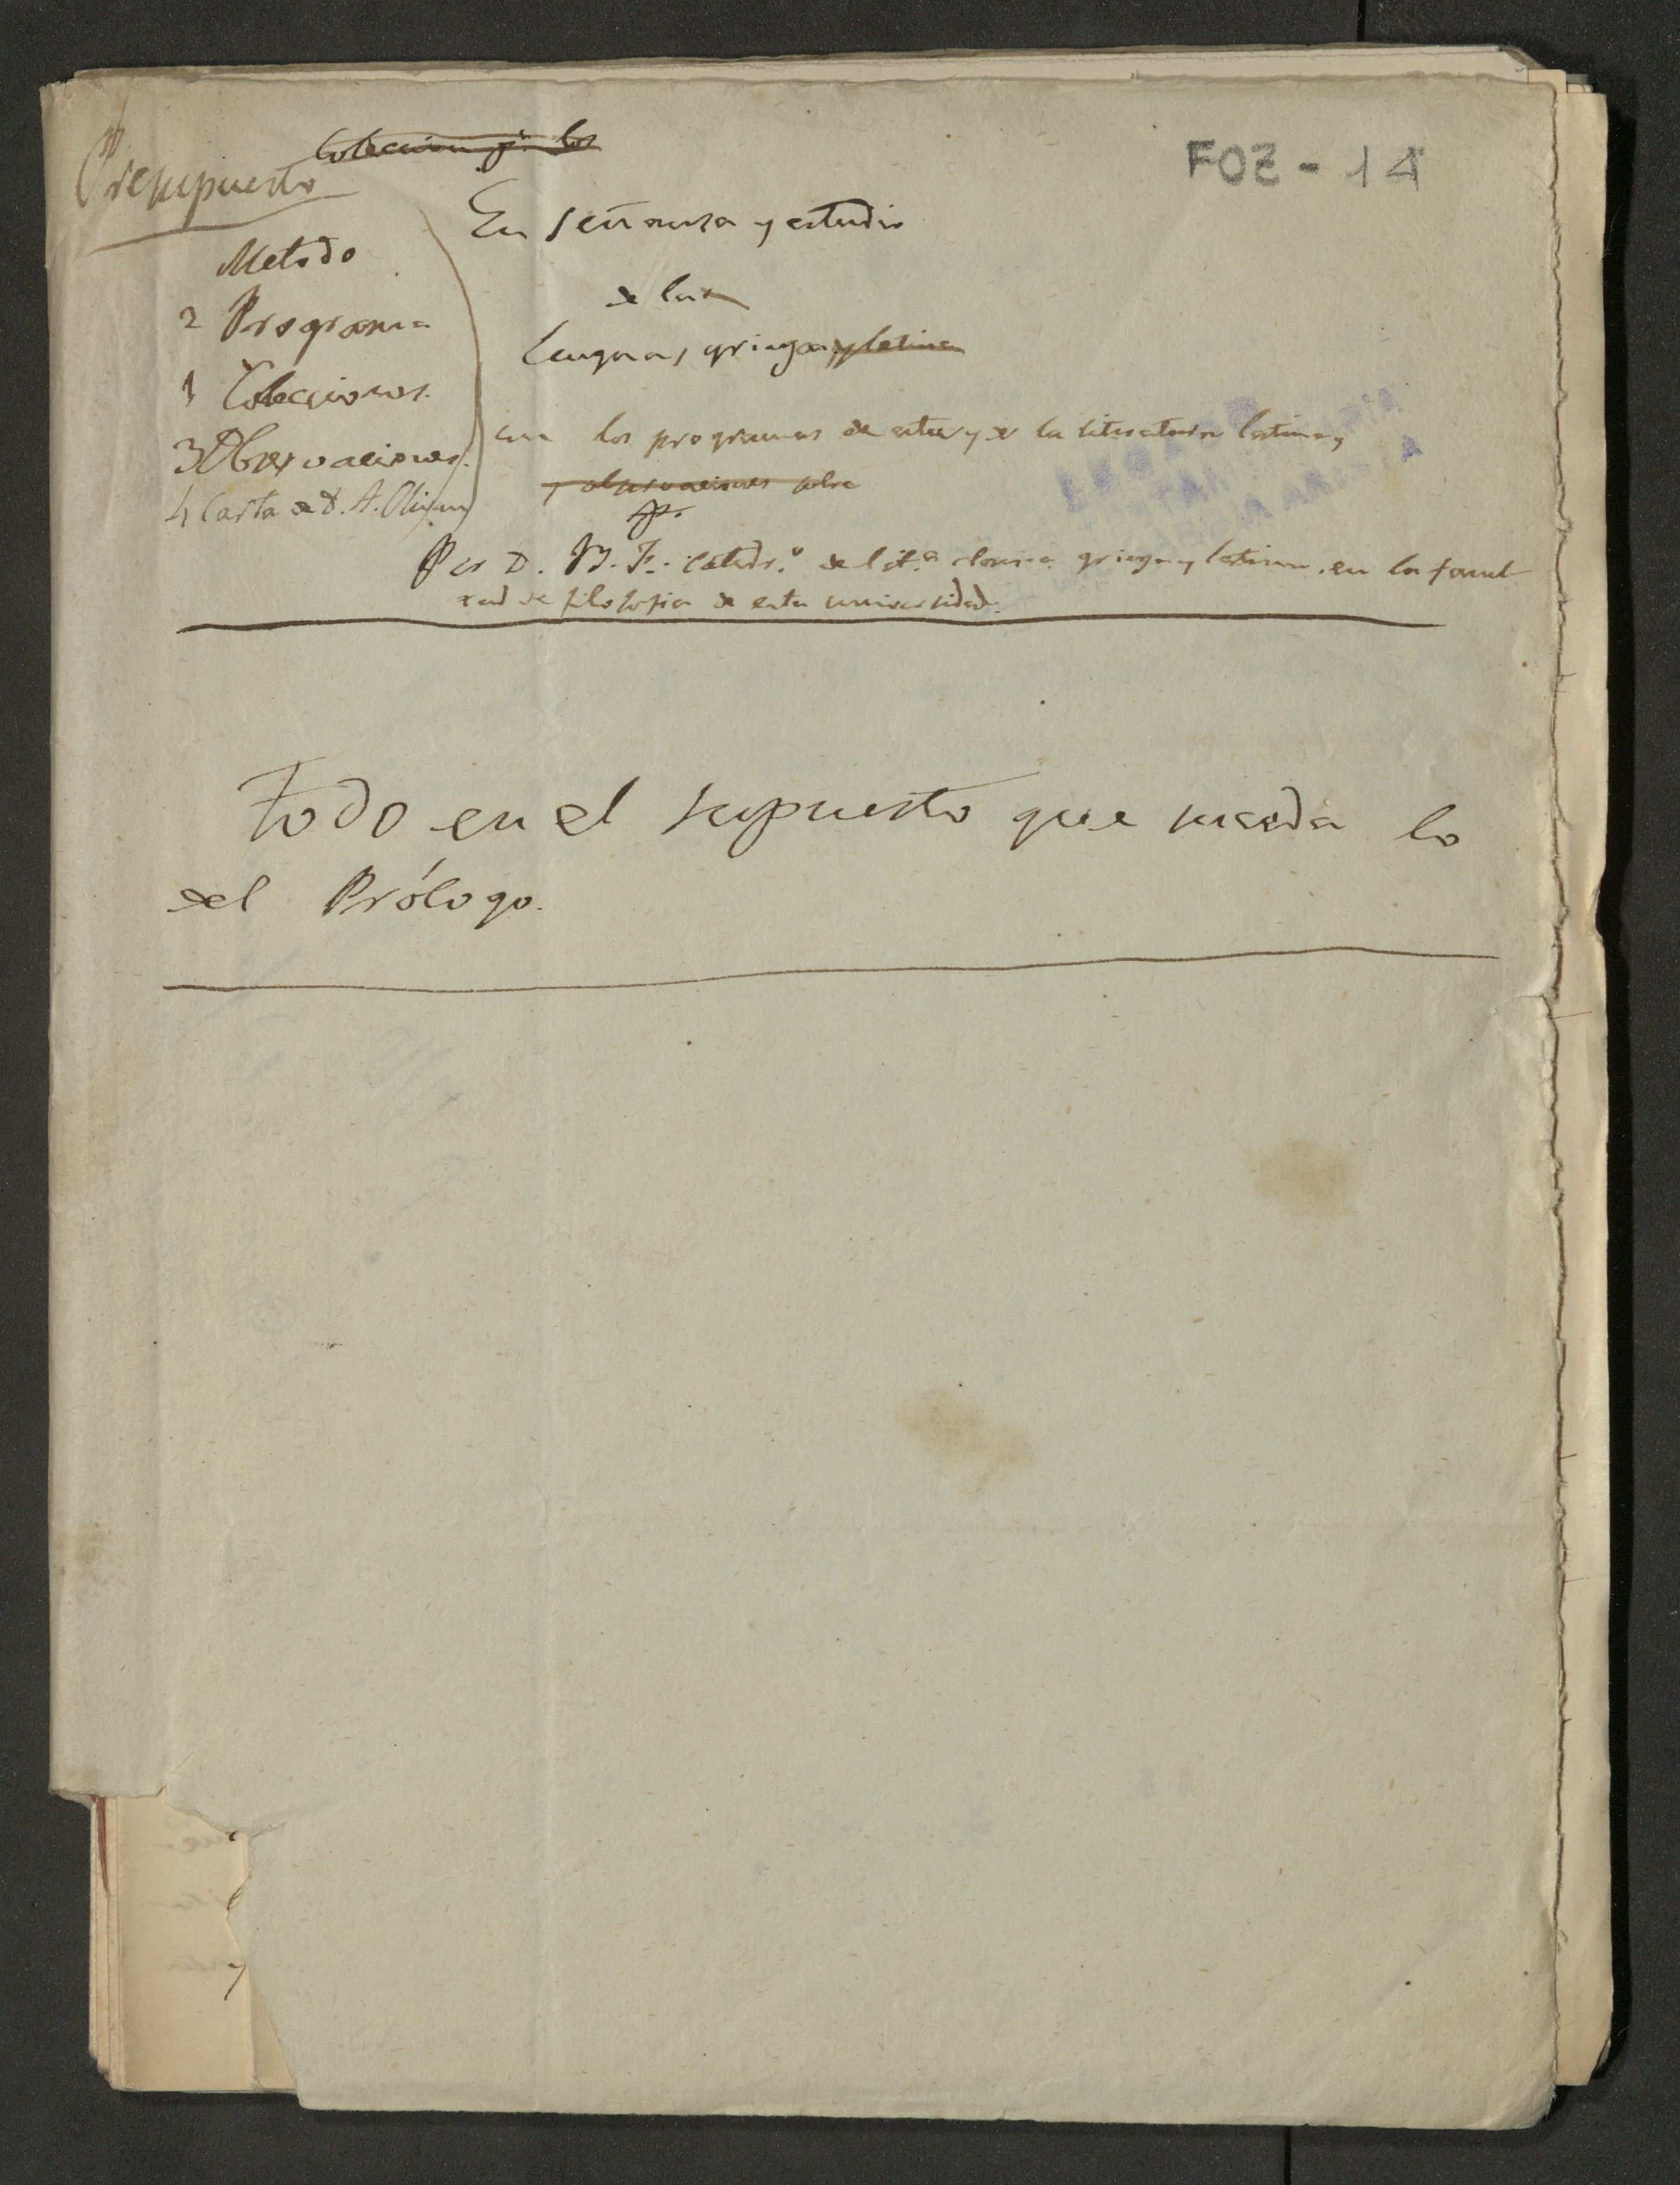 FOZ - 14
Presupuesto
Coleccion pª los
Metodo
2 Programa
1 Colecciones.
3 Observaciones.
4 Carta de D. A. Olivan
Enseñanza y estudio
de las
Lenguas griega y latina
con los programas de esta y de la literatura latina,
y observaciones sobre
Por D. B. F. catedr.º de lit.ª clasica griega y latina, en la facul
tad de filosofia de esta universidad.
Todo en el supuesto que
lo
del Prólogo.